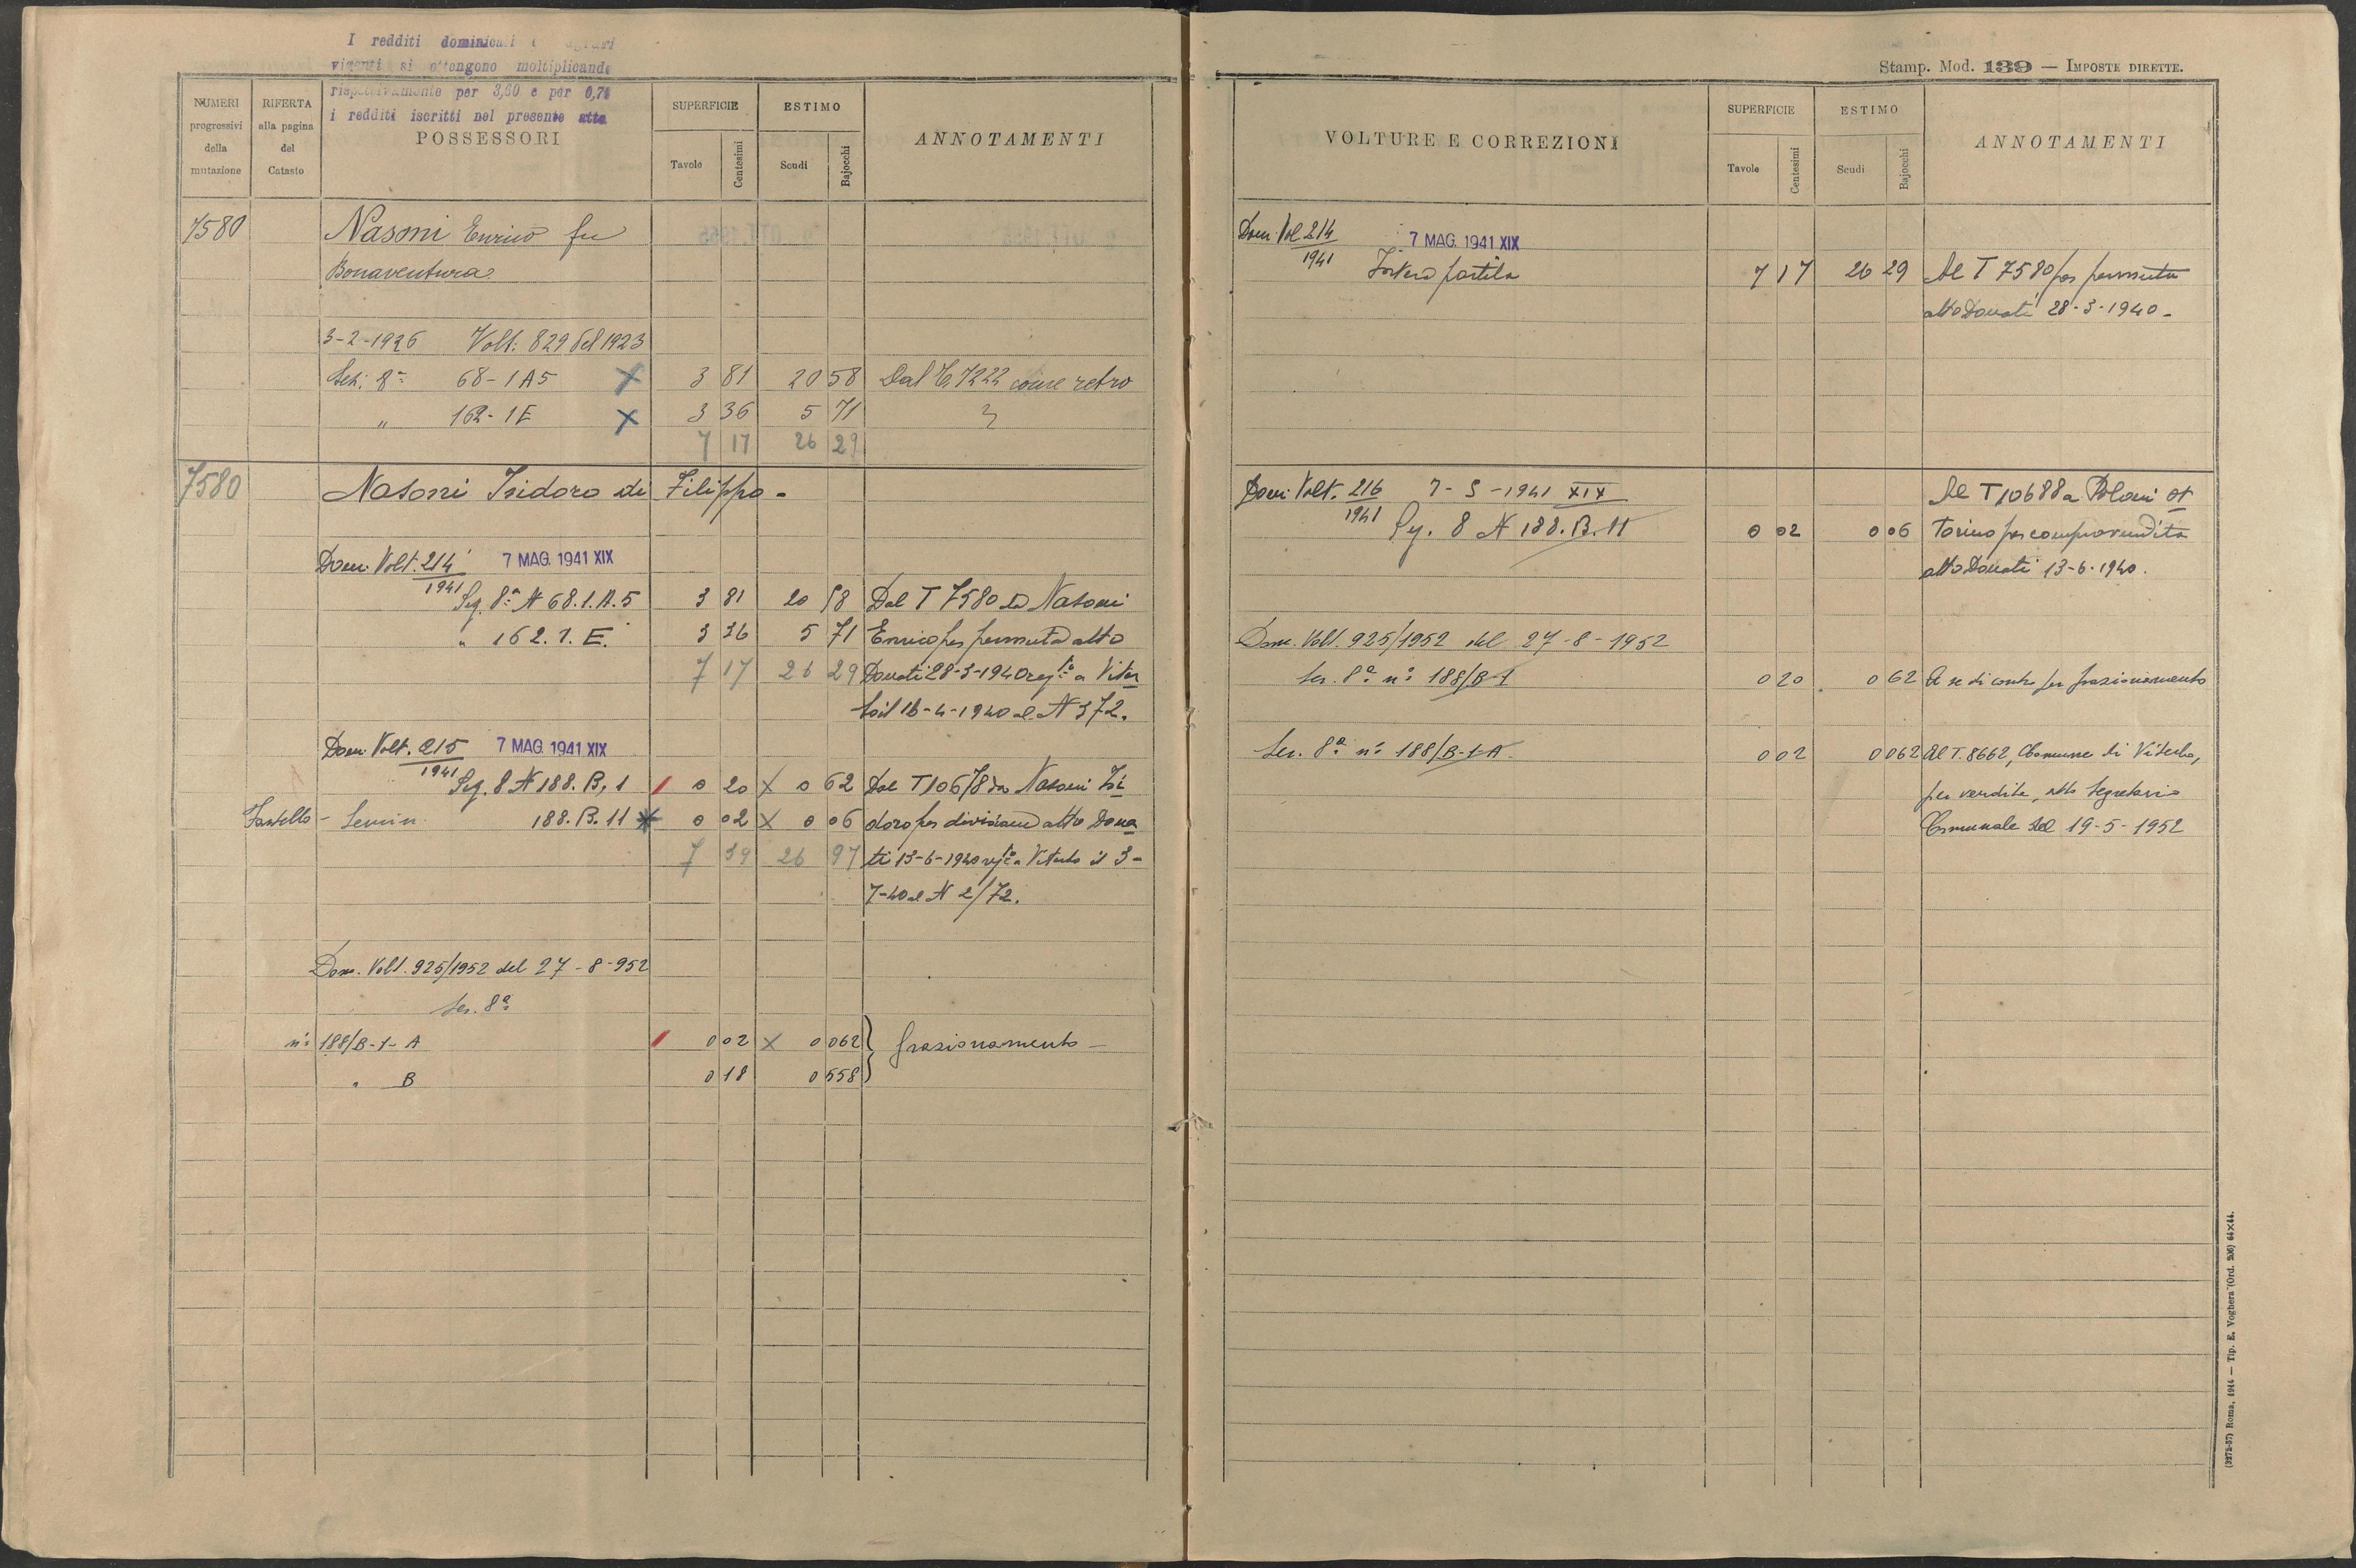 I redditi dominicali e agrari
vigenti si ottengono moltiplicando
rispettivamente per 3,60 e per 0,74
i redditi iscritti nel presente atto
NUMERI progressivi della mutazione
RIFERTA alla pagina del Catasto
POSSESSORI
SUPERFICIE
Tavole
Centesimi
ESTIMO
Scudi
Bajocchi
ANNOTAMENTI
7580 Nasoni Enrico fu
Bonaventura
3-2-1926 Volt. 829 del 1923
Sez. 8ª 68-1A5 X 3 81 20 58 Dal T. 7222 come retro
" 162-1E X 3 36 5 71 "
7 17 26 29
7580 Nasoni Isidoro di Filippo -
Dom. Volt. 214/1941 7 MAG. 1941 XIX
Seg. 8ª N 68.1.A.5 3 81 20 58 Dal T 7580 da Nasoni
" 162.1.E. 3 36 5 71 Enrico per permuta atto
7 17 26 29 Donati 28-3-1940 regto a Viter
bo il 16-4-1940 al N 372.
Dom. Volt. 215/1941 7 MAG. 1941 XIX
Seg. 8 N 188.B,1 0 20 X 0 62 Dal T 10678 da Nasoni Isi
Semin. 188.B.11 0 02 X 0 06 doro per divisione atto Dona
7 39 26 97 ti 13-6-1940 regto a Viterbo il 3-
7-40 al N 2/72.
Dom. Volt. 925/1952 del 27-8-952
Sez. 8ª
n° 188/B-1-A 0 02 X 0 062 } frazionamento -
" B 0 18 0 558
Stamp. Mod. 139 — IMPOSTE DIRETTE.
VOLTURE E CORREZIONI
SUPERFICIE
Tavole
Centesimi
ESTIMO
Scudi
Bajocchi
ANNOTAMENTI
Dom. Vol 214/1941 7 MAG. 1941 XIX
Intera partita 7 17 26 29 Al T 7580 per permuta
atto Donati 28-3-1940-
Dom. Volt. 216/1941 7-5-1941 XIX Al T 10688 a Poloni et
Seg. 8 N 188.B.11 0 02 0 06 Torino per compravendita
atto Donati 13-6-1940.
Dom. Volt. 925/1952 del 27-8-1952
Sez. 8ª n° 188/B-1 0 20 0 62 A se di contro per frazionamento
Sez. 8ª n° 188/B-1-A 0 02 0 062 Al T. 8662, Comune di Viterbo,
per vendita, atto Segretario
Comunale del 19-5-1952
(3272-57) Roma, 1914 — Tip. E. Voghera (Ord. 206) 64×44.